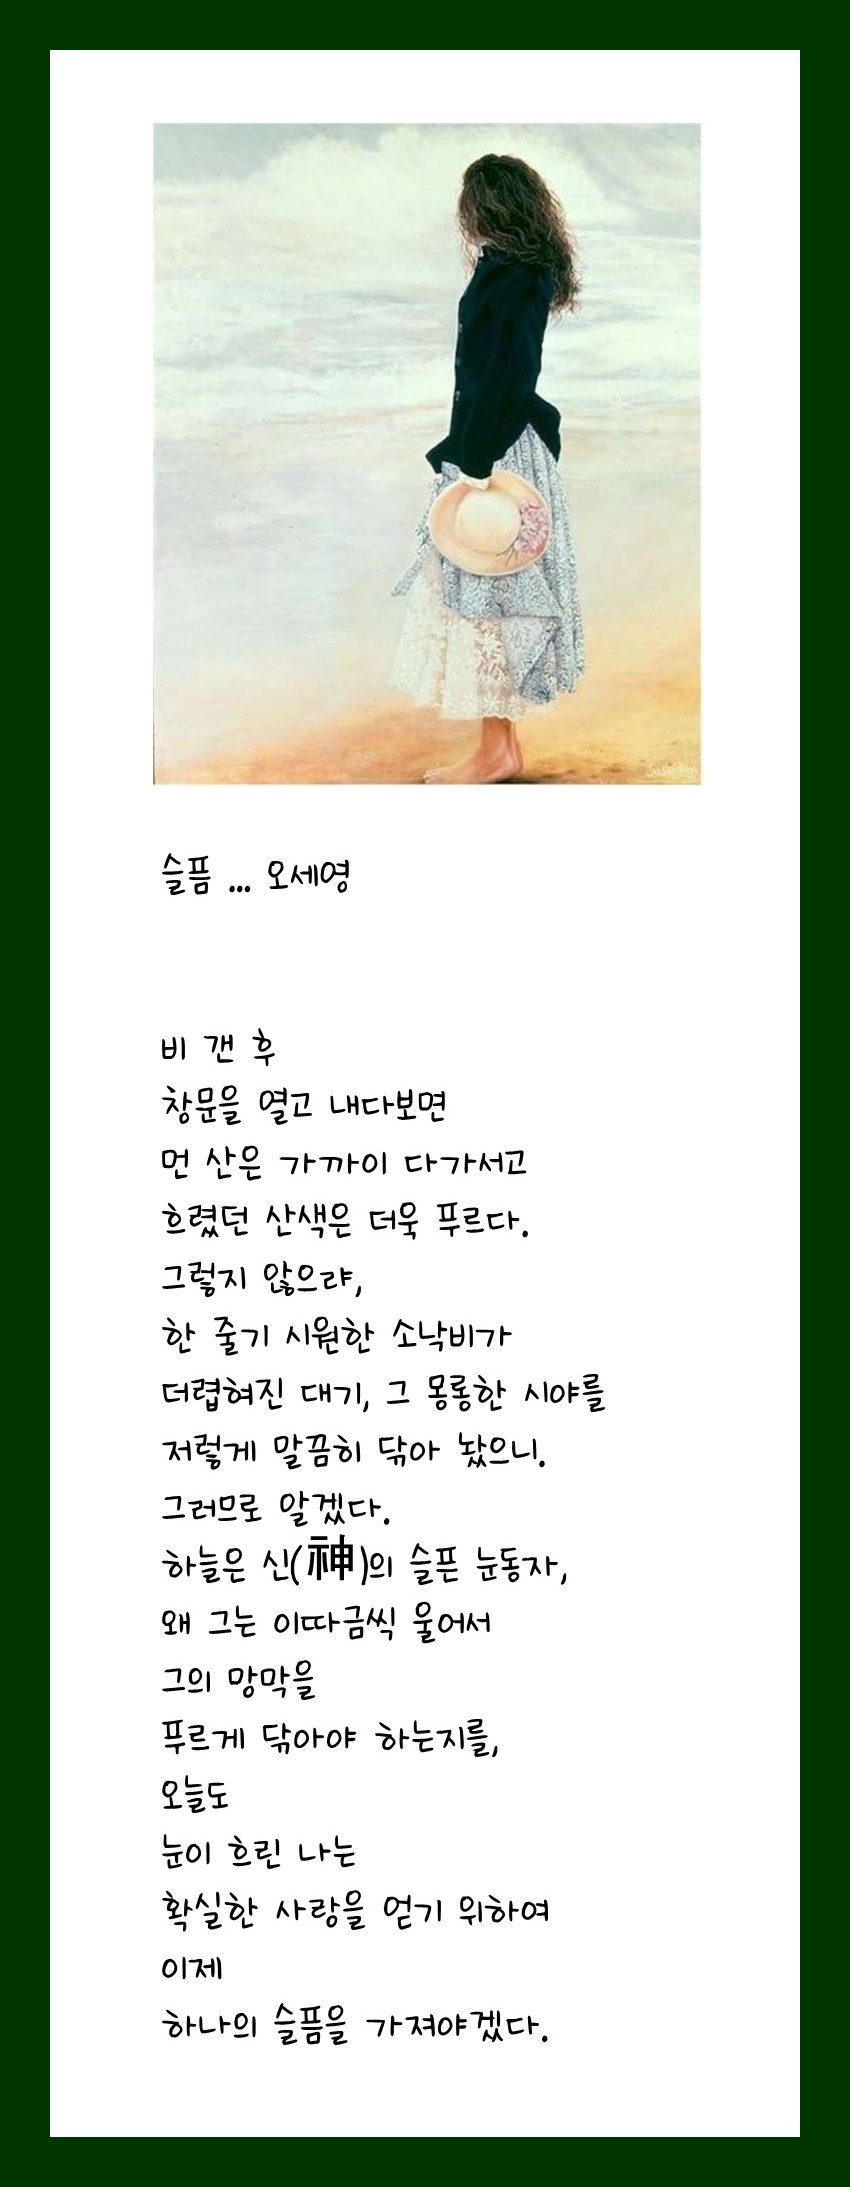 슬픔 ... 오세영
비 갠 후
창문을 열고 내다보면
먼 산은 가까이 다가서고
흐렸던 산색은 더욱 푸르다.
그렇지 않으랴,
한 줄기 시원한 소낙비가
더렵혀진 대기, 그 몽롱한 시야를
저렇게 말끔히 닦아 놨으니.
그러므로 알겠다.
하늘은 신(神)의 슬픈 눈동자,
왜 그는 이따금씩 울어서
그의 망막을
푸르게 닦아야 하는지를,
오늘도
눈이 흐린 나는
확실한 사랑을 얻기 위하여
이제
하나의 슬픔을 가져야겠다.